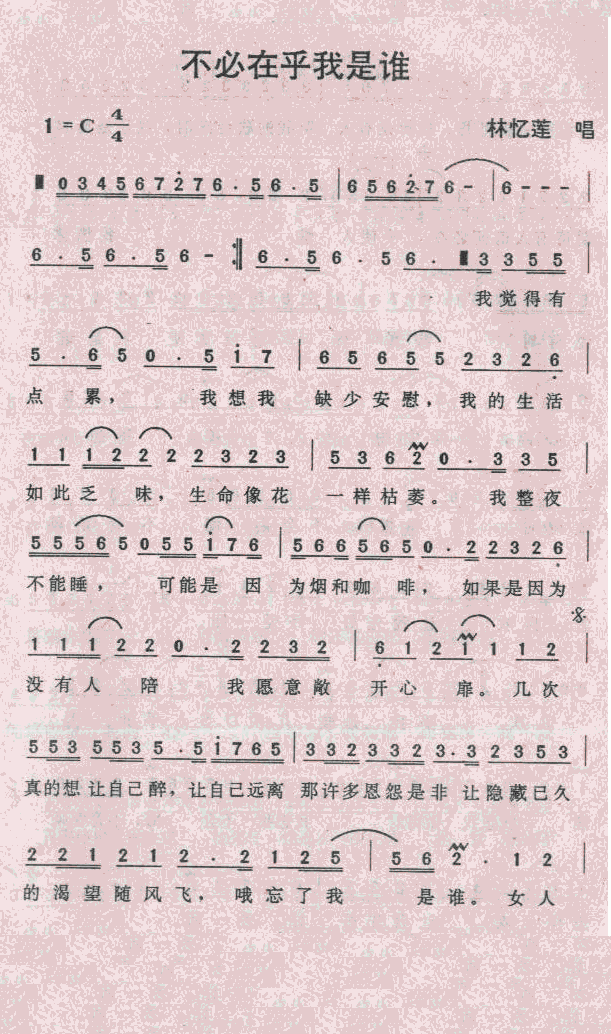 不必在乎我是谁
1 = C 4/4 林忆莲 唱
0 3 4 5 6 7 2 7 6 . 5 6 . 5 | 6 5 6 2 7 6 - | 6 - - - |
6 . 5 6 . 5 6 - :|| 6 . 5 6 . 5 6 . 3 3 5 5
我觉得有
5 . 6 5 0 . 5 i 7 | 6 5 6 5 5 2 3 2 6 |
点 累， 我想我 缺少安慰，我的生活
1 1 1 2 2 2 2 3 2 3 | 5 3 6 2 0 . 3 3 5
如此乏 味，生命像花 一样枯萎。 我整夜
5 5 5 6 5 0 5 5 i 7 6 | 5 6 6 5 6 5 0 . 2 2 3 2 6 |
不能睡， 可能是 因 为烟和咖 啡， 如果是因为
1 1 1 2 2 0 . 2 2 3 2 | 6 1 2 i 1 1 2 |
没有人 陪 我愿意敞 开心 扉。几次
5 5 3 5 5 3 5 . 5 i 7 6 5 | 3 3 2 3 3 2 3 . 3 2 3 5 3 |
真的想让自己醉，让自己远离 那许多恩怨是非 让隐藏已久
2 2 1 2 1 2 . 2 1 2 5 | 5 6 2 . 1 2 |
的渴望随风飞，哦忘了我 是谁。女人